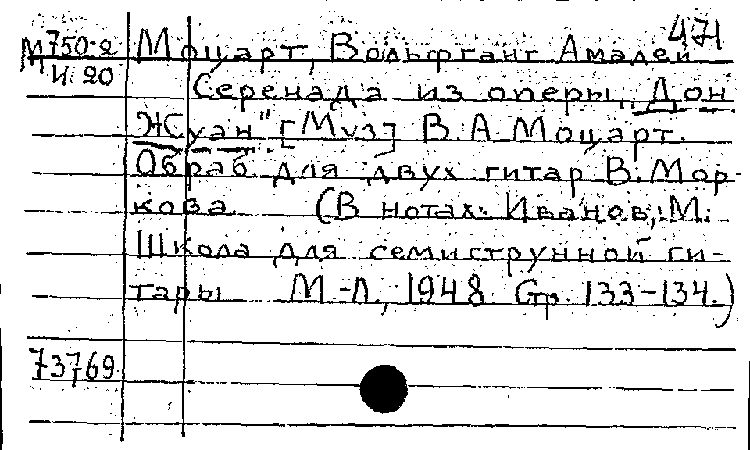 471
М750-2 Моцарт, Вольфганг Амадей
И. 20 Серенада из оперы „Дон
Жуан" [Муз] В. А. Моцарт.
Обраб. для двух гитар В. Мор-
кова (В нотах: Иванов, М.
Школа для семиструнной ги-
тары М-Л., 1948 Стр. 133-134.)
73769